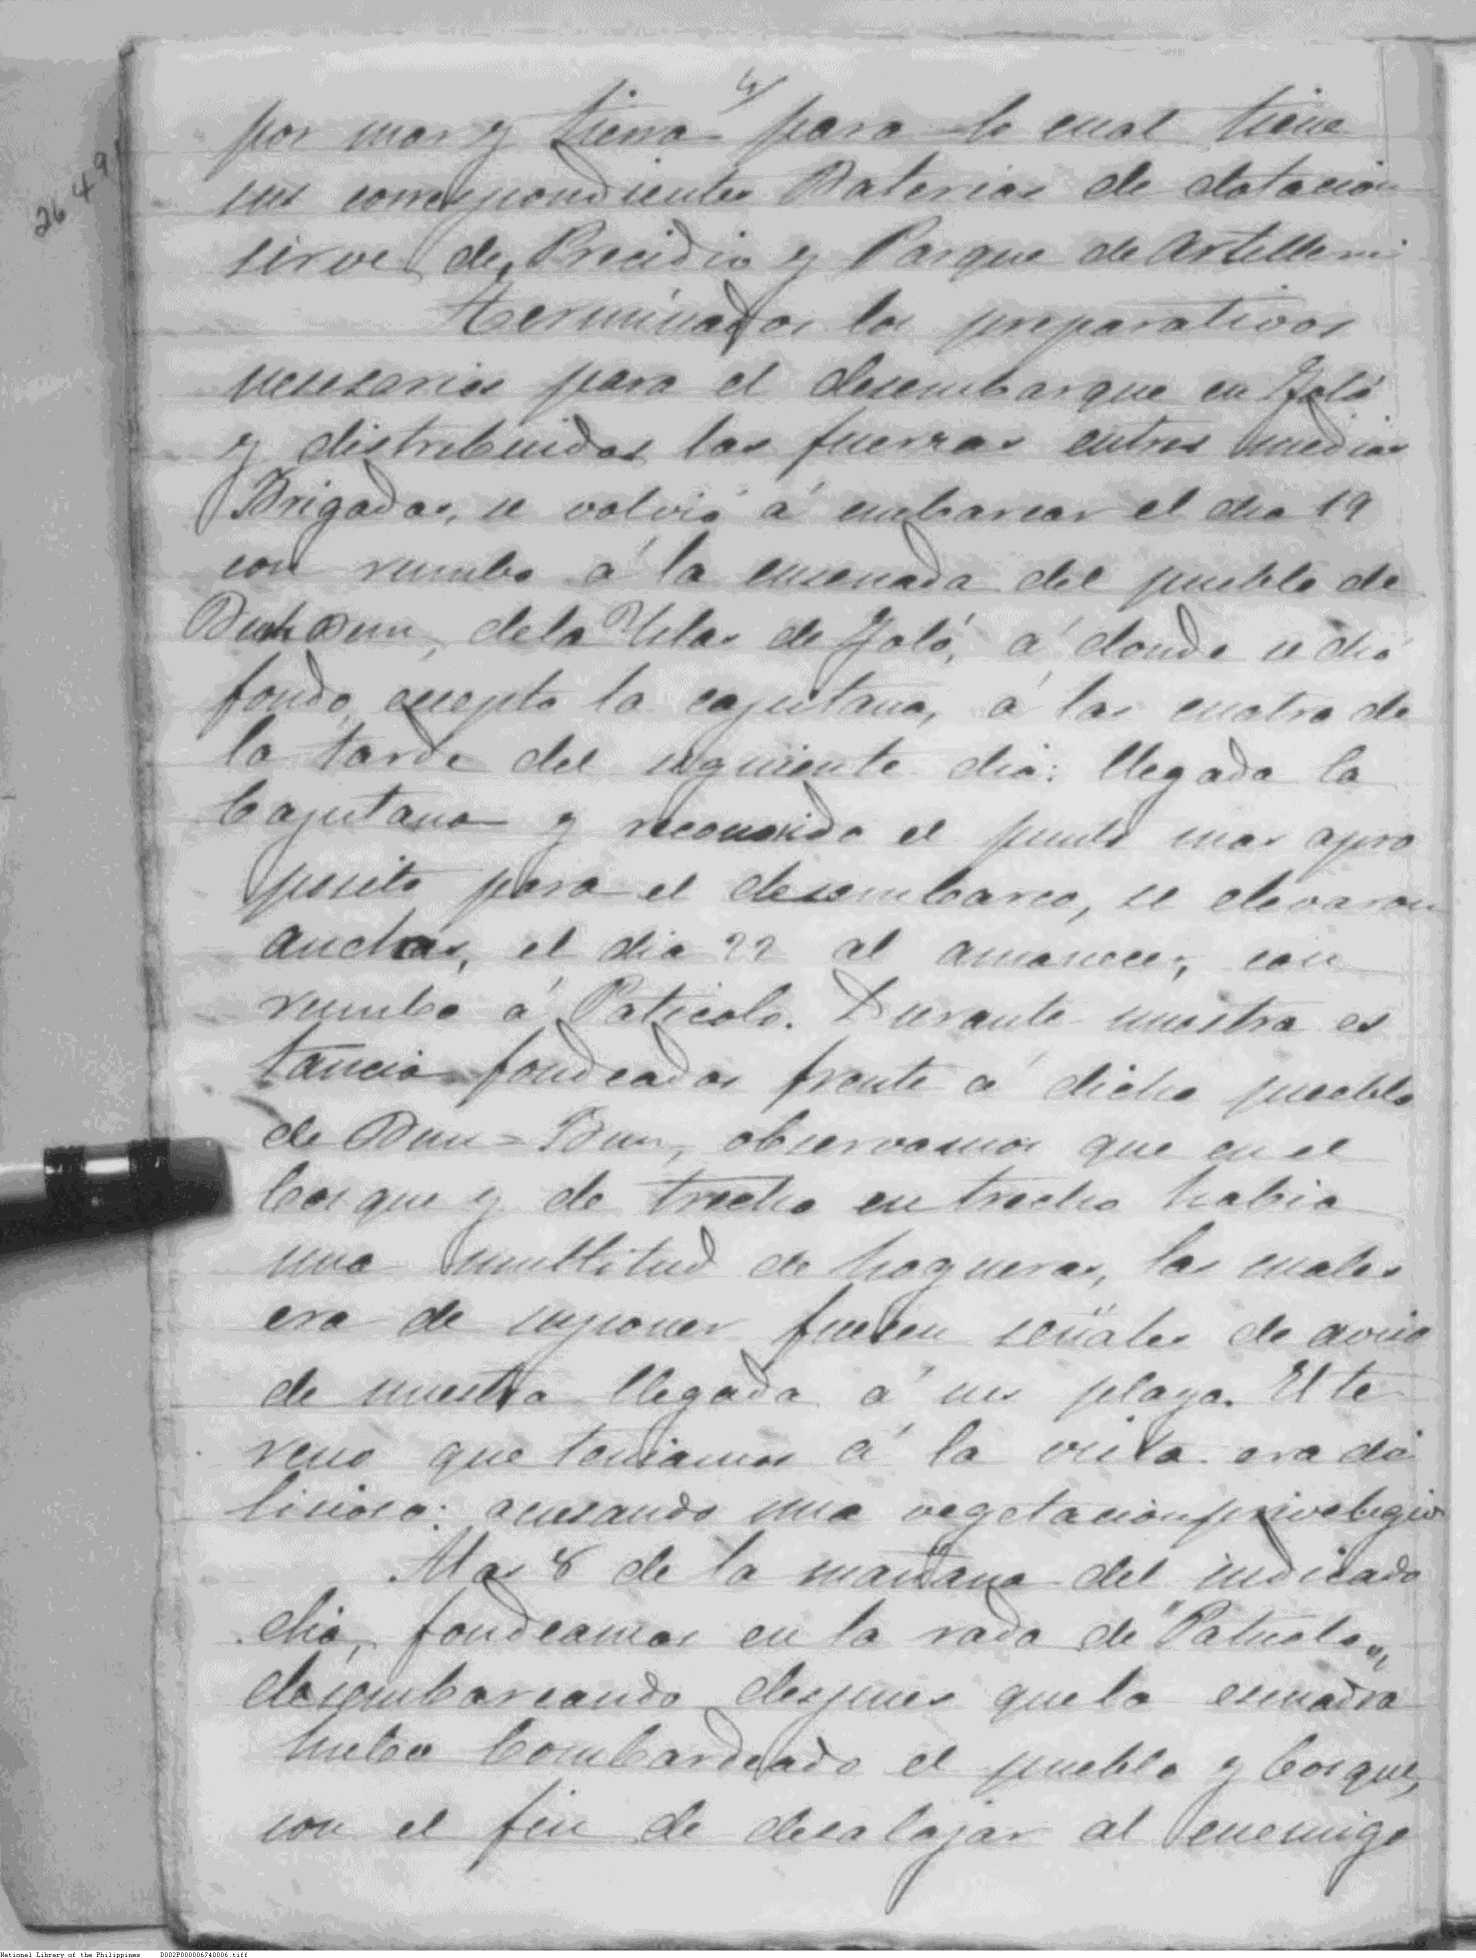 4/
por mar y tierra para lo cual tiene
sus correspondientes Baterias de dotacion
sirve de Precidio y Parque de Artilleri
Terminados los preparativos
nesesarios para el desembarque en Joló
y distribuidas las fuerzas en tres medias
Brigadas, se volvió á embarcar el dia 19
con rumbo á la ensenada del pueblo de
Bun Bun, de la Yslas de Joló, á donde se dió
fondo, esepto la capitana, á las cuatro de
la tarde del siguiente dia: llegada la
Capitana y reconosido el punto mas apro
posito para el desembarco, se elevaron
anclas, el dia 22 al amanecer, con
rumbo á Paticolo. Durante nuestra es
tancia fondeados frente á dicho pueblo
de Bun=Bun, observamos que en el
bosque y de trecho en trecho habia
una multitud de hogueras, las cuales
era de suponer fuesen señales de aviso
de nuestra llegada á sus playa. El te
reno que teniamos á la vista era de
lisioso: acusando una vegetacion privelegio
Alas 8 de la mañana del indicado
dia, fondeamos en la rada de "Paticolo",
desembarcando despues que la escuadra
hubo bombardeado el pueblo y bosque,
con el fin de desalojar al enemigo
2649
National Library of the Philippines D002P000006740006.tiff